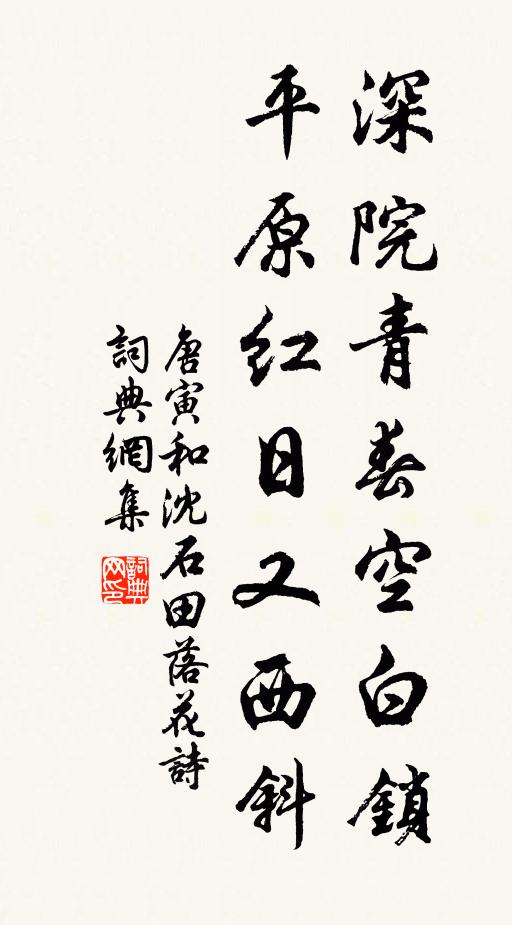 深院青春空白鎖
平原紅日又西斜
唐寅和沈石田落花詩
詞典網集
詞典网印